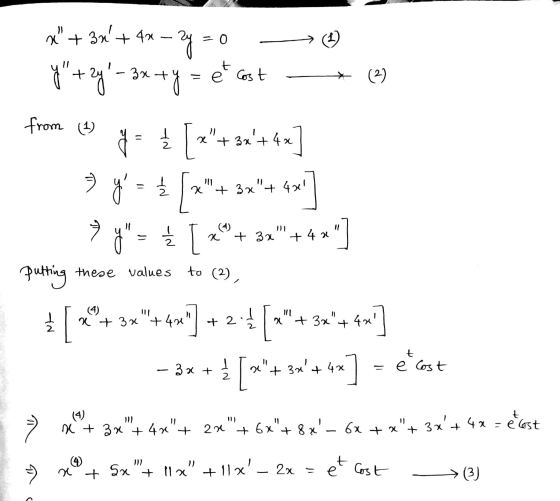 x'' + 3x' + 4x - 2y = 0 ⟶ (1)
y'' + 2y' - 3x + y = e^t Cos t ⟶ (2)
from (1) y = 1/2 [x'' + 3x' + 4x]
⇒ y' = 1/2 [x''' + 3x'' + 4x']
⇒ y'' = 1/2 [x^(4) + 3x''' + 4x'']
putting these values to (2),
1/2 [x^(4) + 3x''' + 4x''] + 2·1/2 [x''' + 3x'' + 4x']
- 3x + 1/2 [x'' + 3x' + 4x] = e^t Cos t
⇒ x^(4) + 3x''' + 4x'' + 2x''' + 6x'' + 8x' - 6x + x'' + 3x' + 4x = e^t Cos t
⇒ x^(4) + 5x''' + 11x'' + 11x' - 2x = e^t Cos t ⟶ (3)